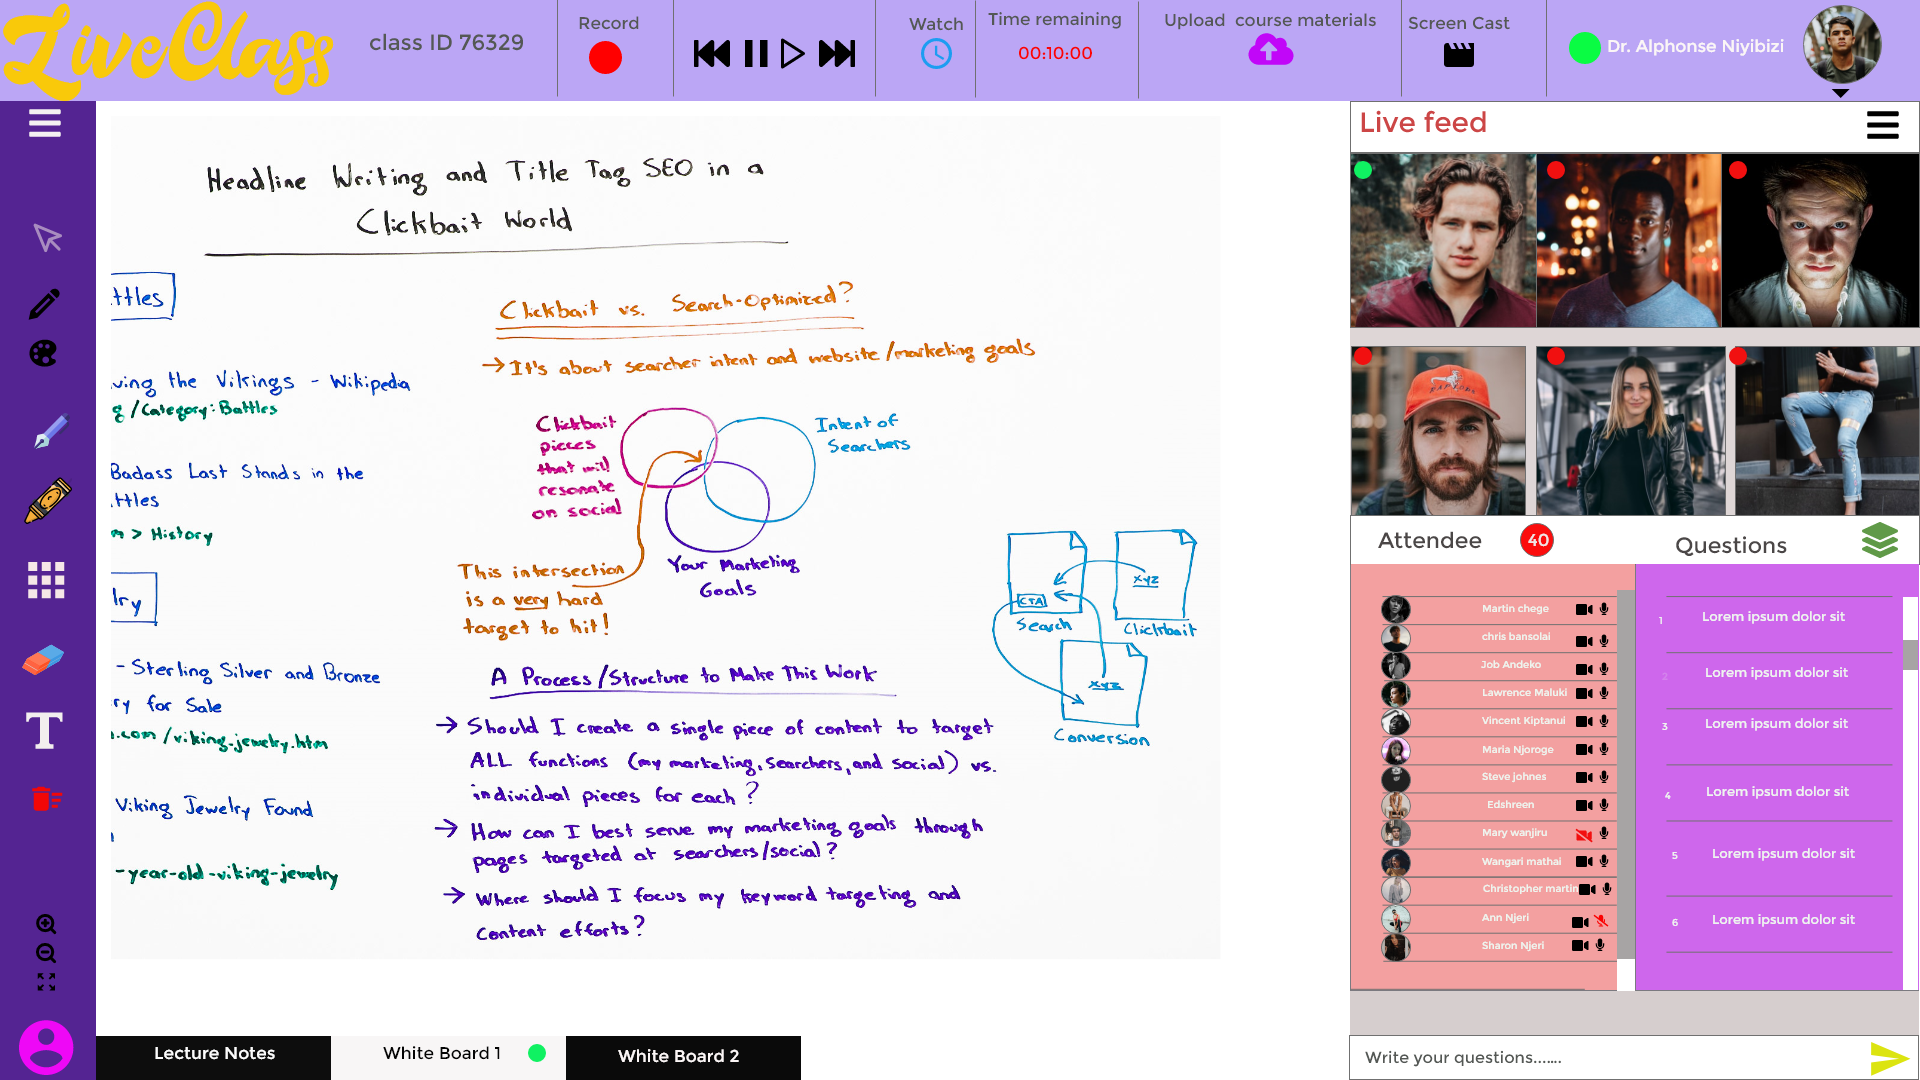 LiveClass
class ID 76329
Record
Watch
Time remaining
00:10:00
Upload course materials
Screen Cast
Dr. Alphonse Niyibizi
Headline Writing and Title Tag SEO in a
Clickbait World
ttles
ving the Vikings - Wikipedia
g/Category:Battles
Badass Last Stands in the
ttles
m > History
lry
- Sterling Silver and Bronze
ry for Sale
.com/viking-jewelry.htm
Viking Jewelry Found
-year-old-viking-jewelry
Clickbait vs. Search-Optimized?
→ It's about searcher intent and website/marketing goals
Clickbait
pieces
that will
resonate
on social
Intent of
Searchers
Your Marketing
Goals
This intersection
is a very hard
target to hit!
CTA
Search
XYZ
Clickbait
XYZ
Conversion
A Process/Structure to Make This Work
→ Should I create a single piece of content to target
ALL functions (my marketing, searchers, and social) vs.
individual pieces for each?
→ How can I best serve my marketing goals through
pages targeted at searchers/social?
→ Where should I focus my keyword targeting and
content efforts?
T
Lecture Notes
White Board 1
White Board 2
Live feed
Attendee
40
Martin chege
chris bansolai
Job Andeko
Lawrence Maluki
Vincent Kiptanui
Maria Njoroge
Steve johnes
Edshreen
Mary wanjiru
Wangari mathai
Christopher martin
Ann Njeri
Sharon Njeri
Questions
1 Lorem ipsum dolor sit
2 Lorem ipsum dolor sit
3 Lorem ipsum dolor sit
4 Lorem ipsum dolor sit
5 Lorem ipsum dolor sit
6 Lorem ipsum dolor sit
Write your questions.......